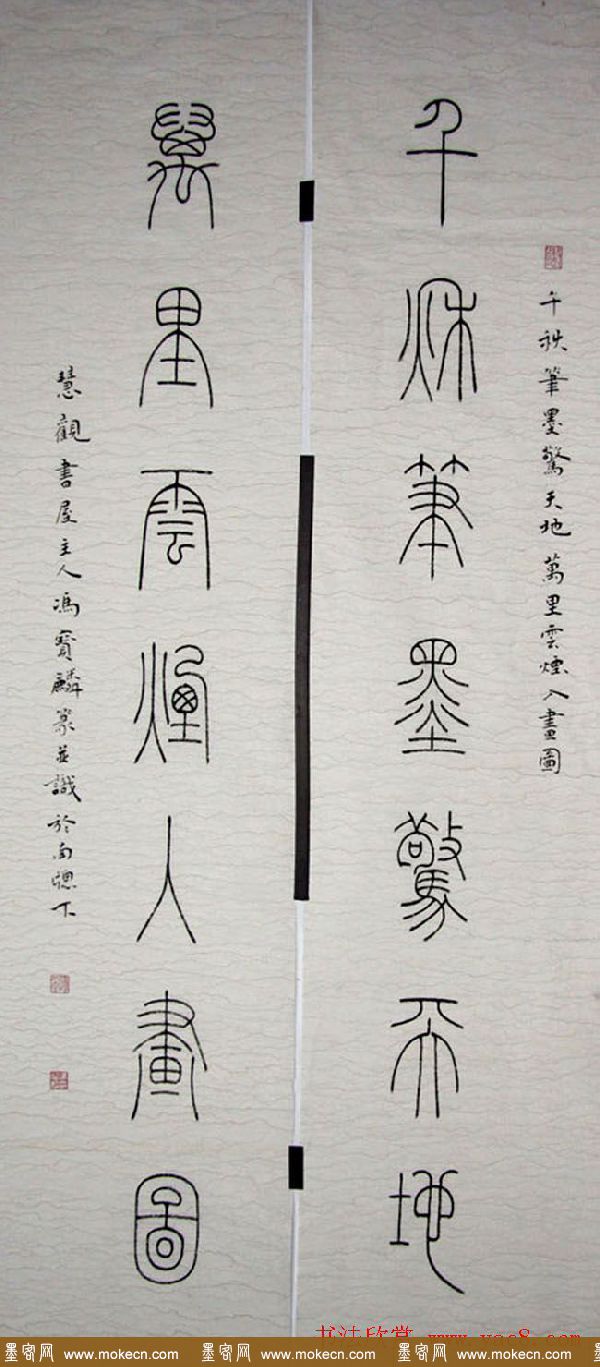 千秋筆墨驚天地
千秋筆墨驚天地萬里雲煙入畫圖
萬里雲煙入畫圖
慧觀書屋主人馮寶麟篆並識於南窗下
书法欣赏 www.yac8.com
墨客网 www.mokecn.com 墨客网 www.mokecn.com 墨客网 www.mokecn.com